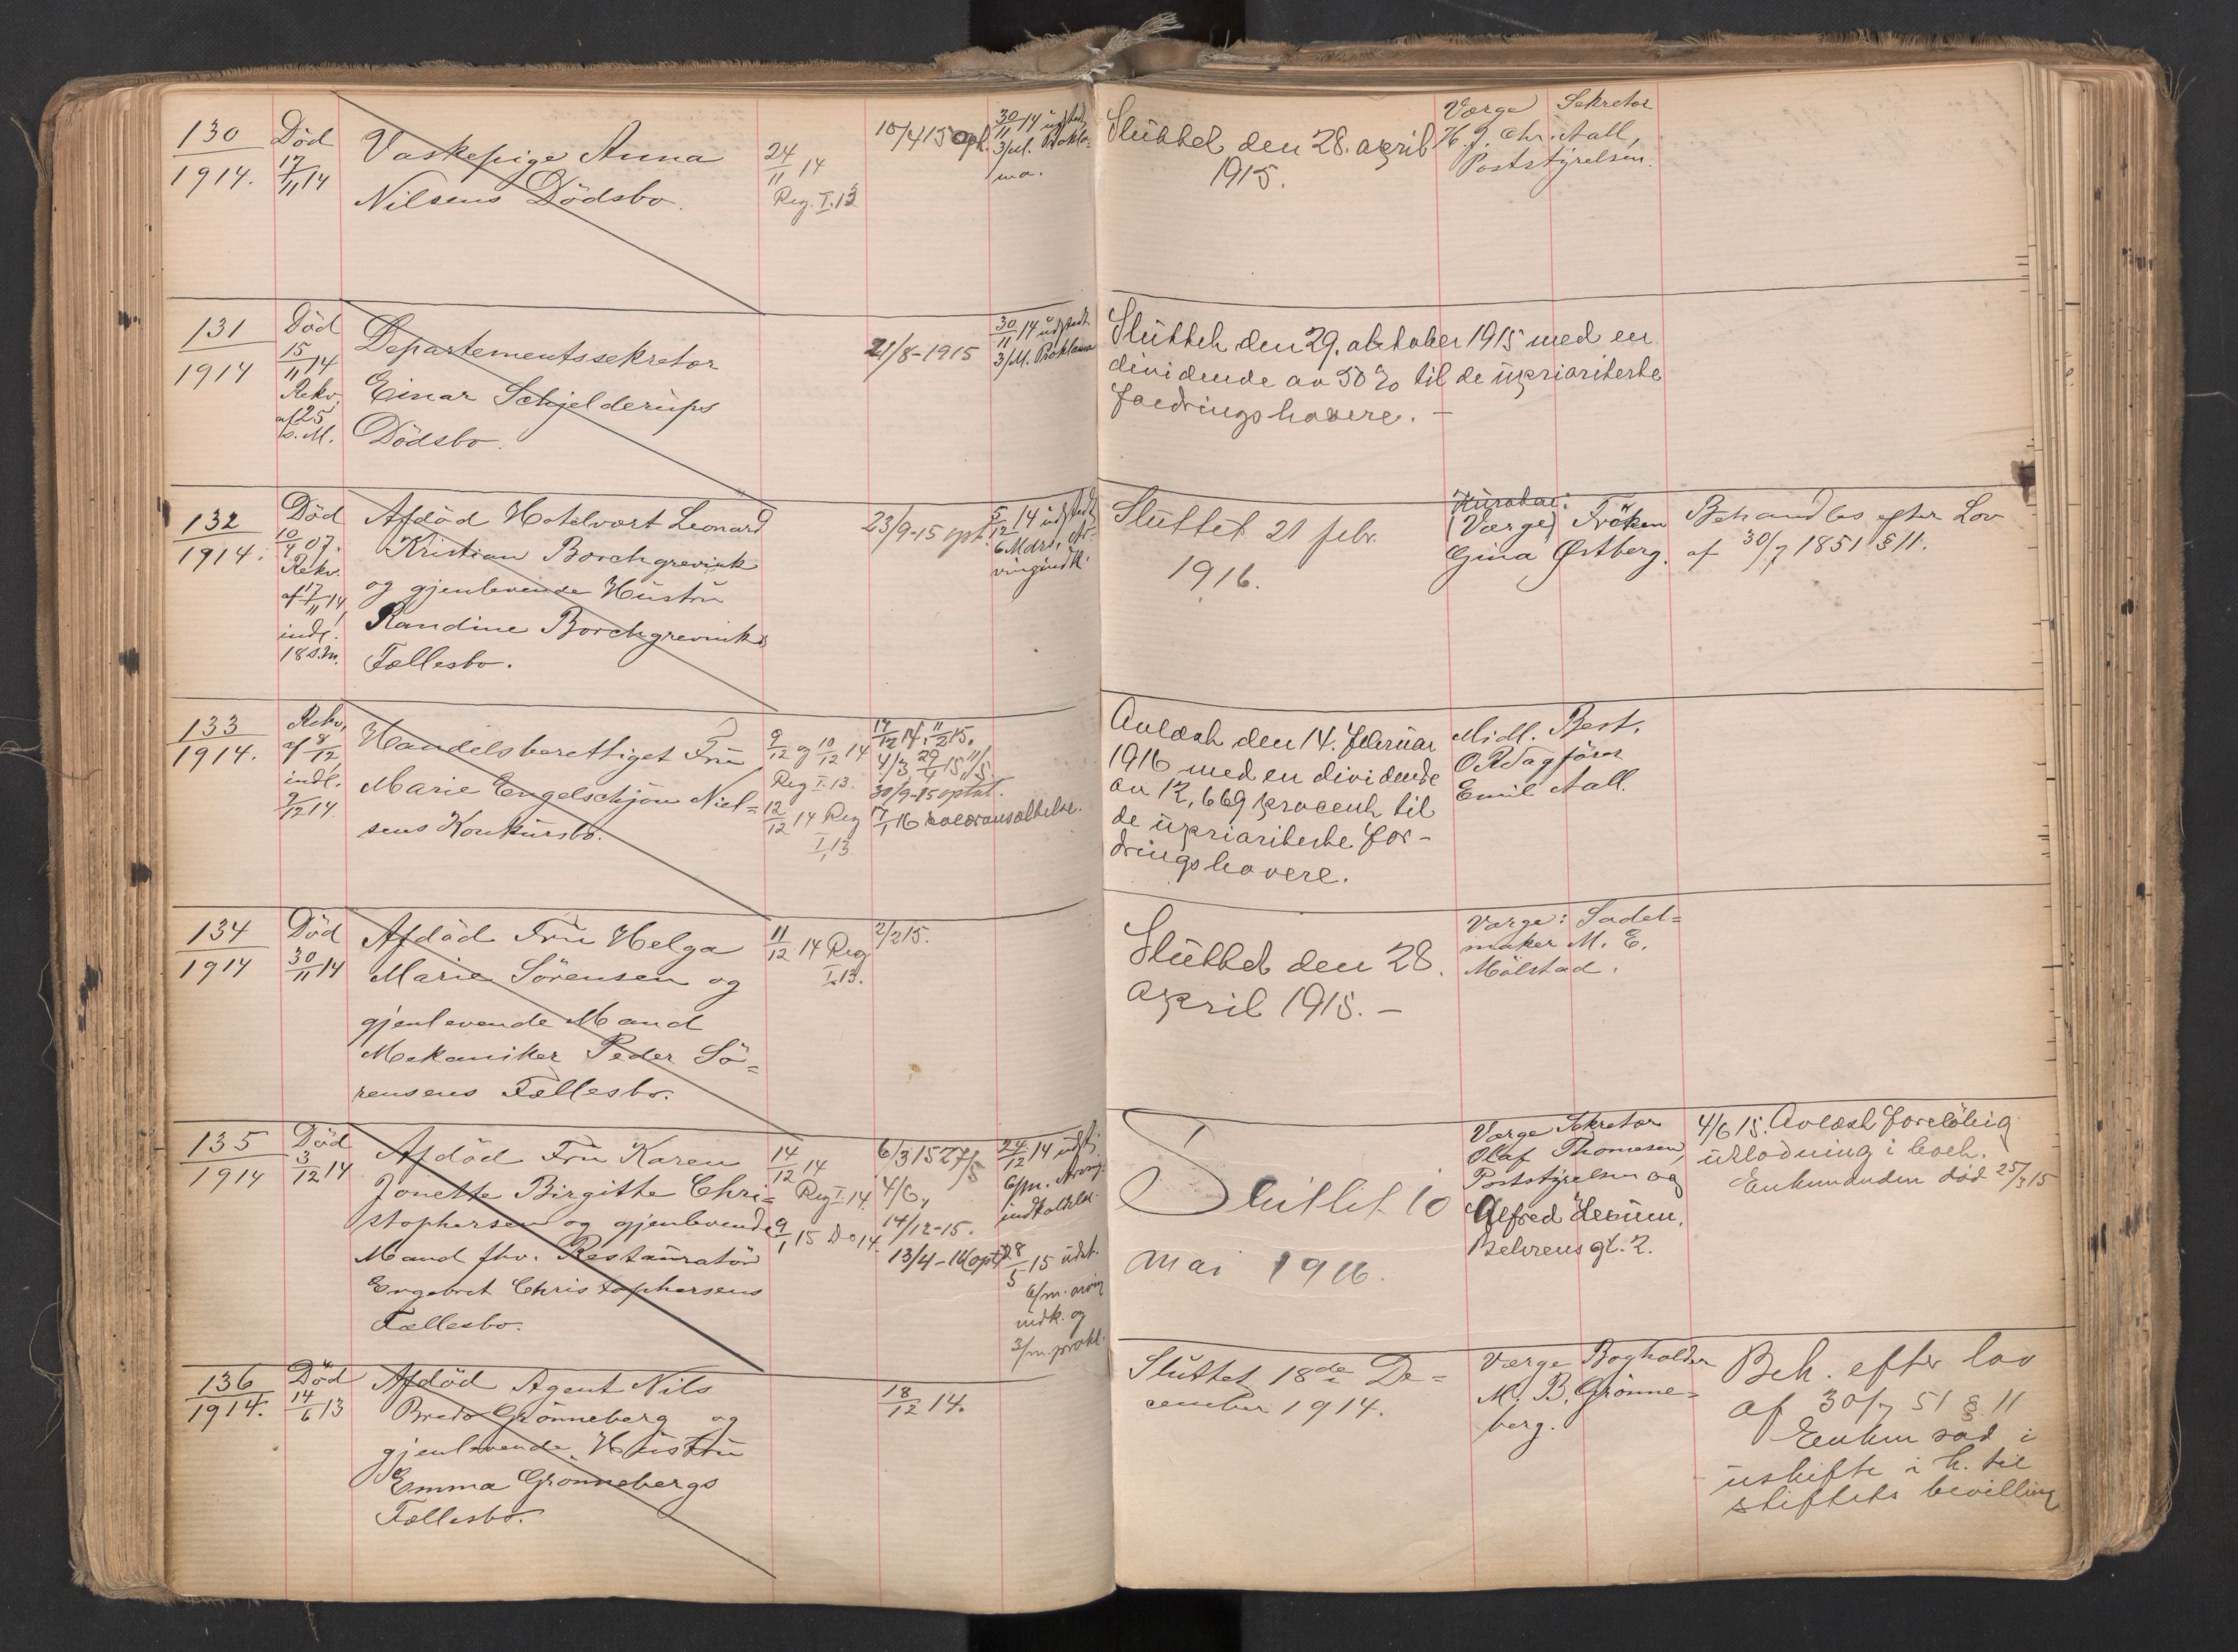 130
1914.
Död
17/11 14
Vaskepige Anna
Nilsens Dödsbo.
24/11 14
Reg. I. 13
15/4 15 opt.
30/11 14 udstedt
3/M. Prokla-
ma.
Sluttet den 28. april
1915.
Værge Sekretær
H. J. Chr. Aall,
Poststyrelsen.
131
1914
Död
15/11 14
Rekv.
af 25
s. M.
Departementssekretær
Einar Schjelderups
Dödsbo.
21/8-1915
30/11 14 udstedt
3/M. Proklama
Sluttet den 29. oktober 1915 med en
dividende av 50 % til de uprioriterte
fordringshavere. -
132
1914.
Död
10/4 07.
Rekv.
af 17/11 14
indl.
18 s.m.
Afdöd Hotelvært Leonard
Kristian Borchgrevink
og gjenlevende Hustru
Randine Borchgrevinks
Fællesbo.
23/9-15 opt.
5/12 14 udstedt
6 Mdrs. Ar-
vingindk.
Sluttet 21 febr.
1916.
Kurator:
(Værge) Fröken
Gina Østberg.
Behandles efter Lov
af 30/7 1851 § 11.
133
1914.
Rekv.
af 8/12
indl.
9/12 14.
Handelsberettiget Fru
Marie Engelschjøn Niel=
sens Konkursbo.
9/12 og 10/12 14
Reg I. 13.
12/12 14 Reg
I. 13
17/12 14. 11/2 15.
4/3 29/4 15 11/5
30/9-15 optat.
17/1 16
Avlæst den 14. februar
1916 med en dividende
av 12,669 procent til
de uprioriterte for-
dringshavere.
Midl. Best.
O R Sagförer
Emil Aall.
134
1914
Död
30/11 14
Afdöd Fru Helga
Marie Sörensen og
gjenlevende Mand
Mekaniker Peder Sö=
rensens Fællesbo.
11/12 14 Reg
I. 13.
2/2 15.
Sluttet den 28.
april 1915. -
Værge: Sadel=
maker M. E.
Mölstad.
135
1914
Död
3/12 14
Afdöd Fru Karen
Jonette Birgitte Chri=
stophersen og gjenlevende
Mand fhv. Restauratör
Engebret Christophersens
Fællesbo.
14/12 14
Reg I. 14.
9/1 15 Do 14.
6/3 15 27/5
4/6,
14/12-15.
13/4-16 opt.
24/12 14 udst.
6/m. Arving-
indkaldelse.
28/5 15 udst.
6/m. arving
indk. og
3/m. prokl.
Sluttet 10
mai 1916.
Værge Sekretær
Olaf Thomesen,
Poststyrelsen og
Alfred
Behrensgt. 2.
4/6 15. Avlæst foreløbig
utlodning i boet.
Enkemanden död 25/3 15
136
1914.
Död
14/6 13
Afdöd Agent Nils
Bredo Grönneberg og
gjenlevende Hustru
Emma Grönnebergs
Fællesbo.
18/12 14.
Sluttet 18de De=
cember 1914.
Værge Bogholder
M. B. Grönne=
berg.
Beh. efter lov
af 30/7 51 § 11
Enken sad i
uskifte i h. til
stiftets bevilling